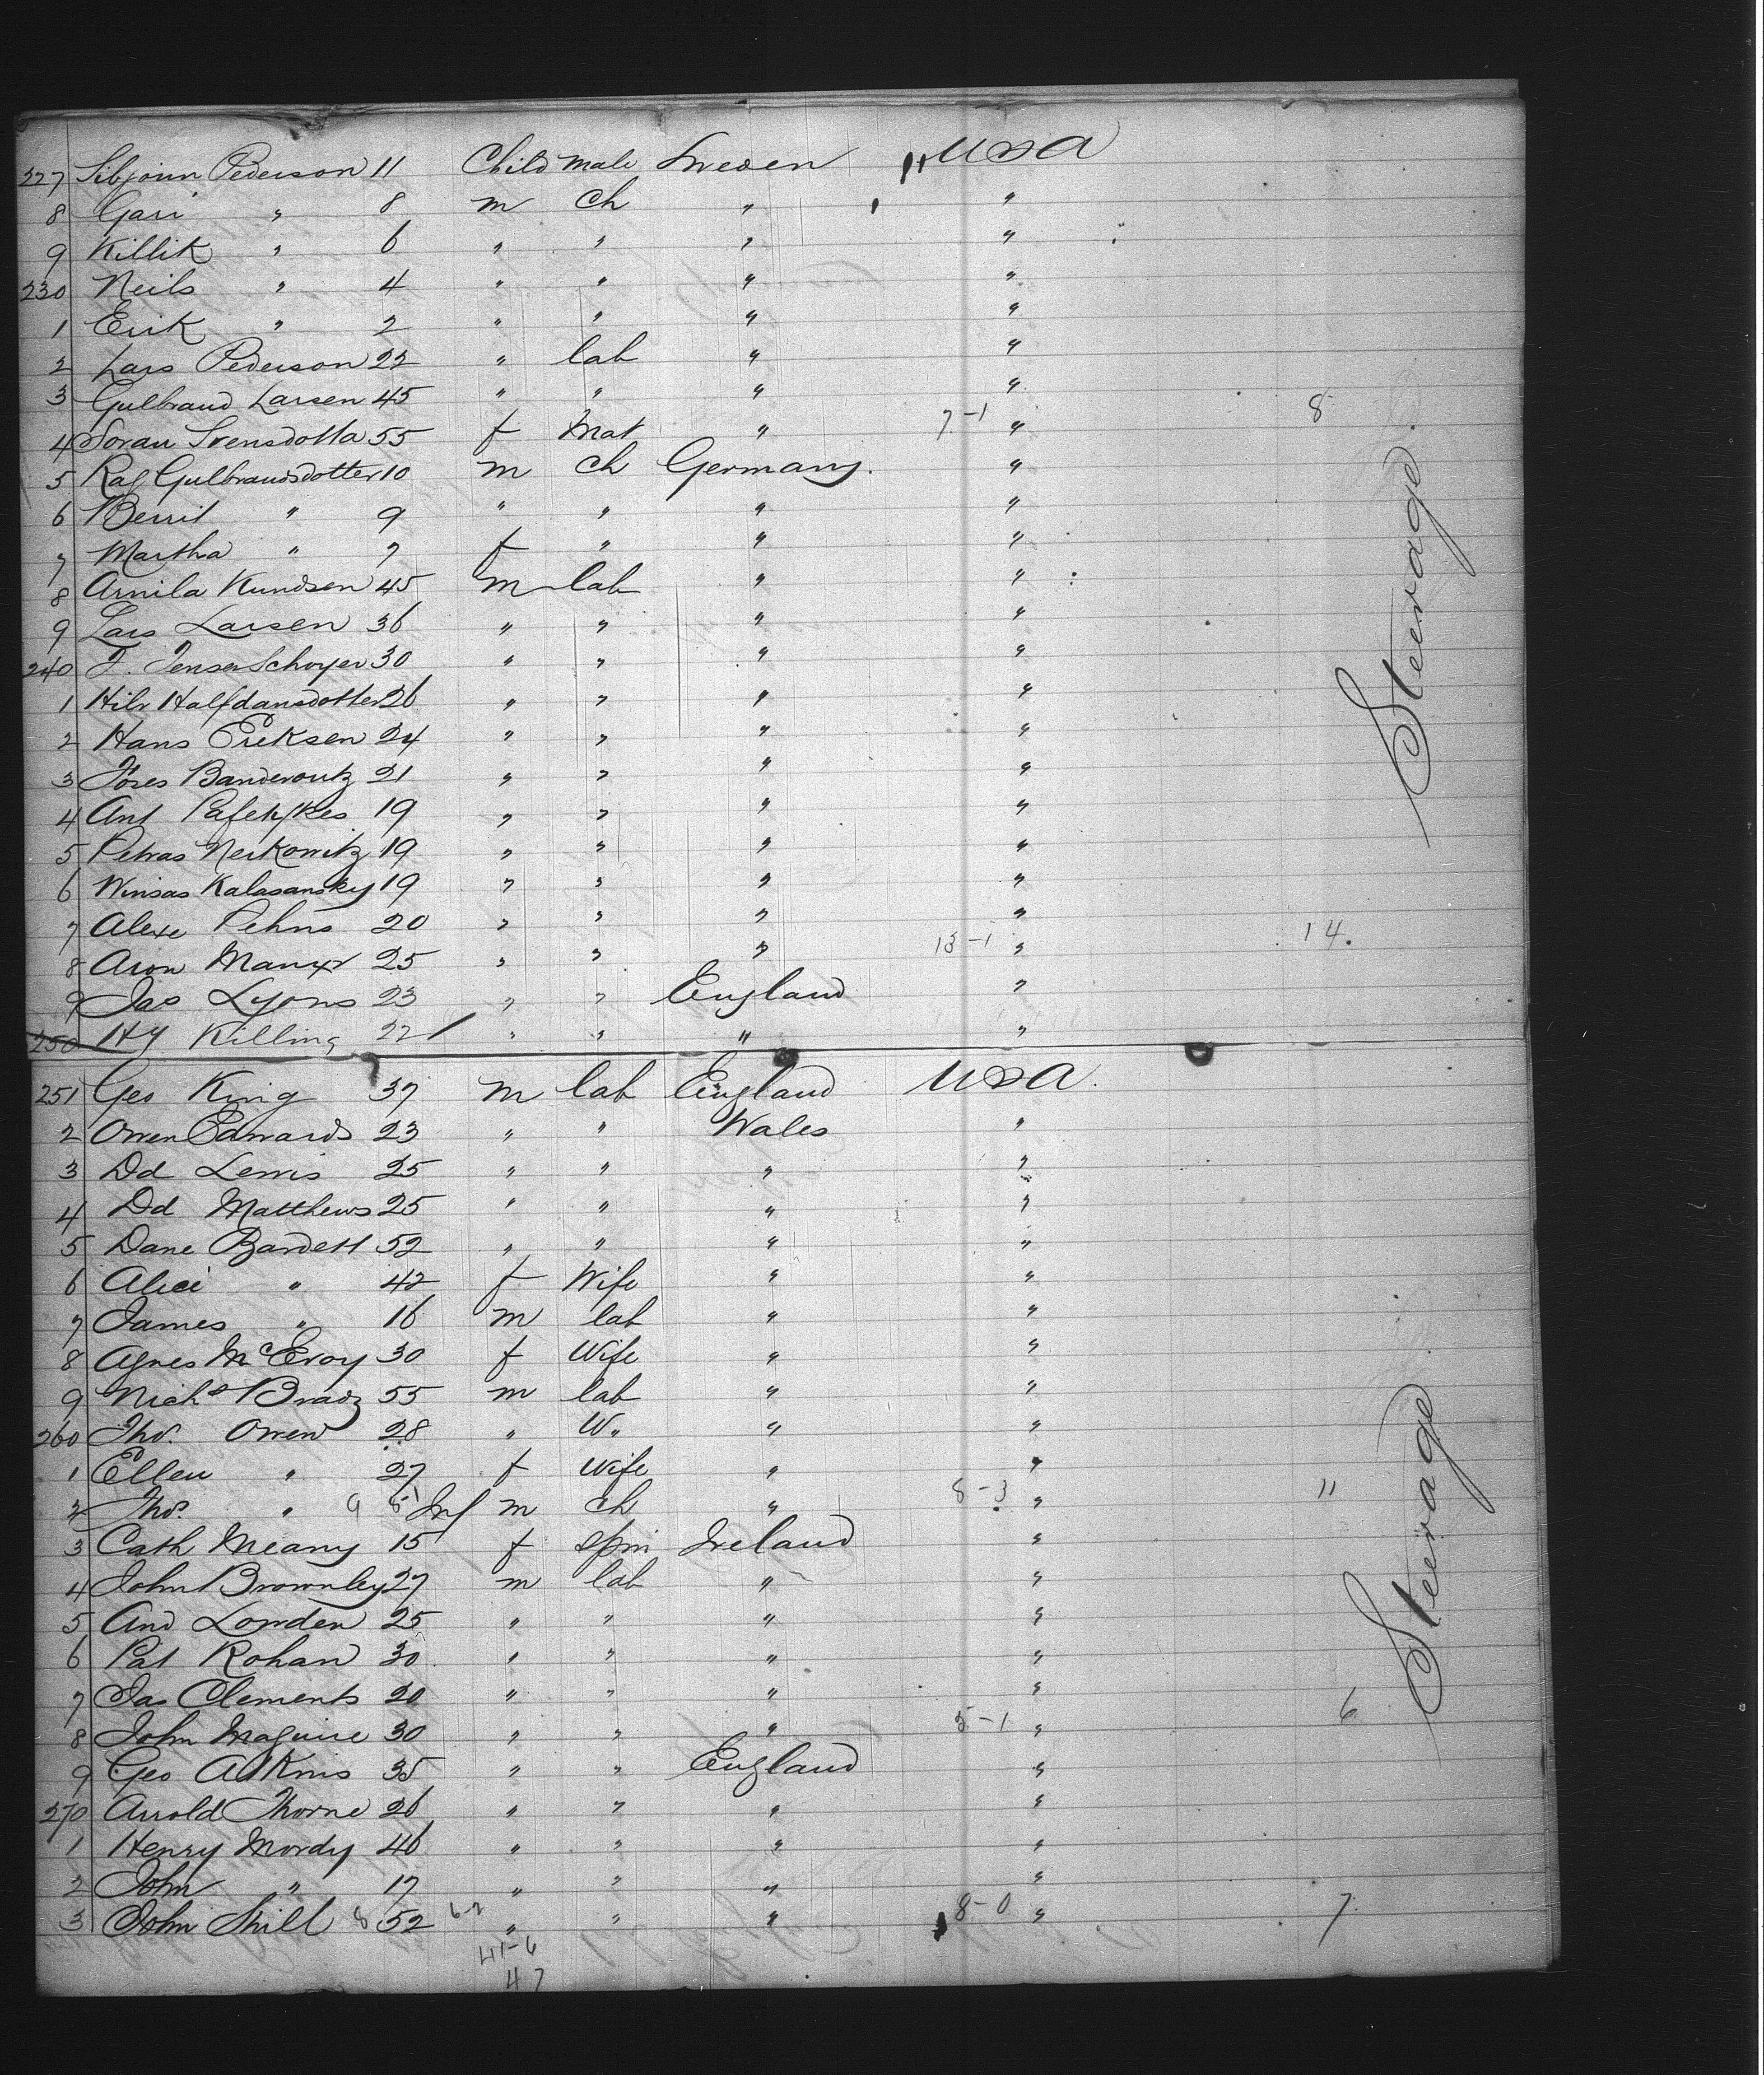 227 Sibjorin Pederson 11 Child Male Sweden USA
8 Gari " 8 m Ch " "
9 Killik " 6 " " " "
230 Neils " 4 " " " "
1 Erik " 2 " " " "
2 Lars Pederson 22 " lab " "
3 Gulbrand Larsen 45 " " " "
4 Soran Svensdotta 55 f Mat " 7-1 " 8
5 Rag Gulbrandsdotter 10 m Ch Germany. "
6 Berrit " 9 " " " "
7 Martha " 7 f " " "
8 Arnila Kundsen 45 m lab " "
9 Lars Larsen 36 " " " "
240 J. Jensen Schoyer 30 " " " "
1 Hilr Halfdansdotter 26 " " " "
2 Hans Eriksen 24 " " " "
3 Banderoutz 21 " " " "
4 Ant 19 " " " "
5 Petras Neikowitz 19 " " " "
6 Winsas Kalasansky 19 " " " "
7 Alexe Pehns 20 " " " "
8 Aron 25 " " " 13-1 " 14.
9 Jas Lyons 23 " " England "
250 Hy Killing 22 " " " "
251 Geo King 37 m lab England USA.
2 Owen Edwards 23 " " Wales "
3 Dd Lewis 25 " " " "
4 Dd Matthews 25 " " " "
5 Dane Bardett 52 " " " "
6 Alice " 42 f Wife " "
7 James " 16 m lab " "
8 Agnes McEvoy 30 f Wife " "
9 Nichs Bradz 55 m lab " "
260 Tho. Owen 28 " W. " "
1 Ellen " 27 f Wife " "
2 Thos. " 9 8 Inf m ch " 8-3 " 11
3 Cath Meany 15 f Spin Ireland "
4 John Brownley 27 m lab " "
5 And Lowden 25 " " " "
6 Pat Rohan 30 " " " "
7 Jas Clements 20 " " " "
8 John Maguire 30 " " " 5-1 " 6
9 Geo Atkins 35 " " England "
270 Arrold Thorne 26 " " " "
1 Henry Mordy 46 " " " "
2 John " 17 " " " "
3 John Shill 8 52 6-2 " " " 8-0 " 7
41-6
47
Steerage
Steerage